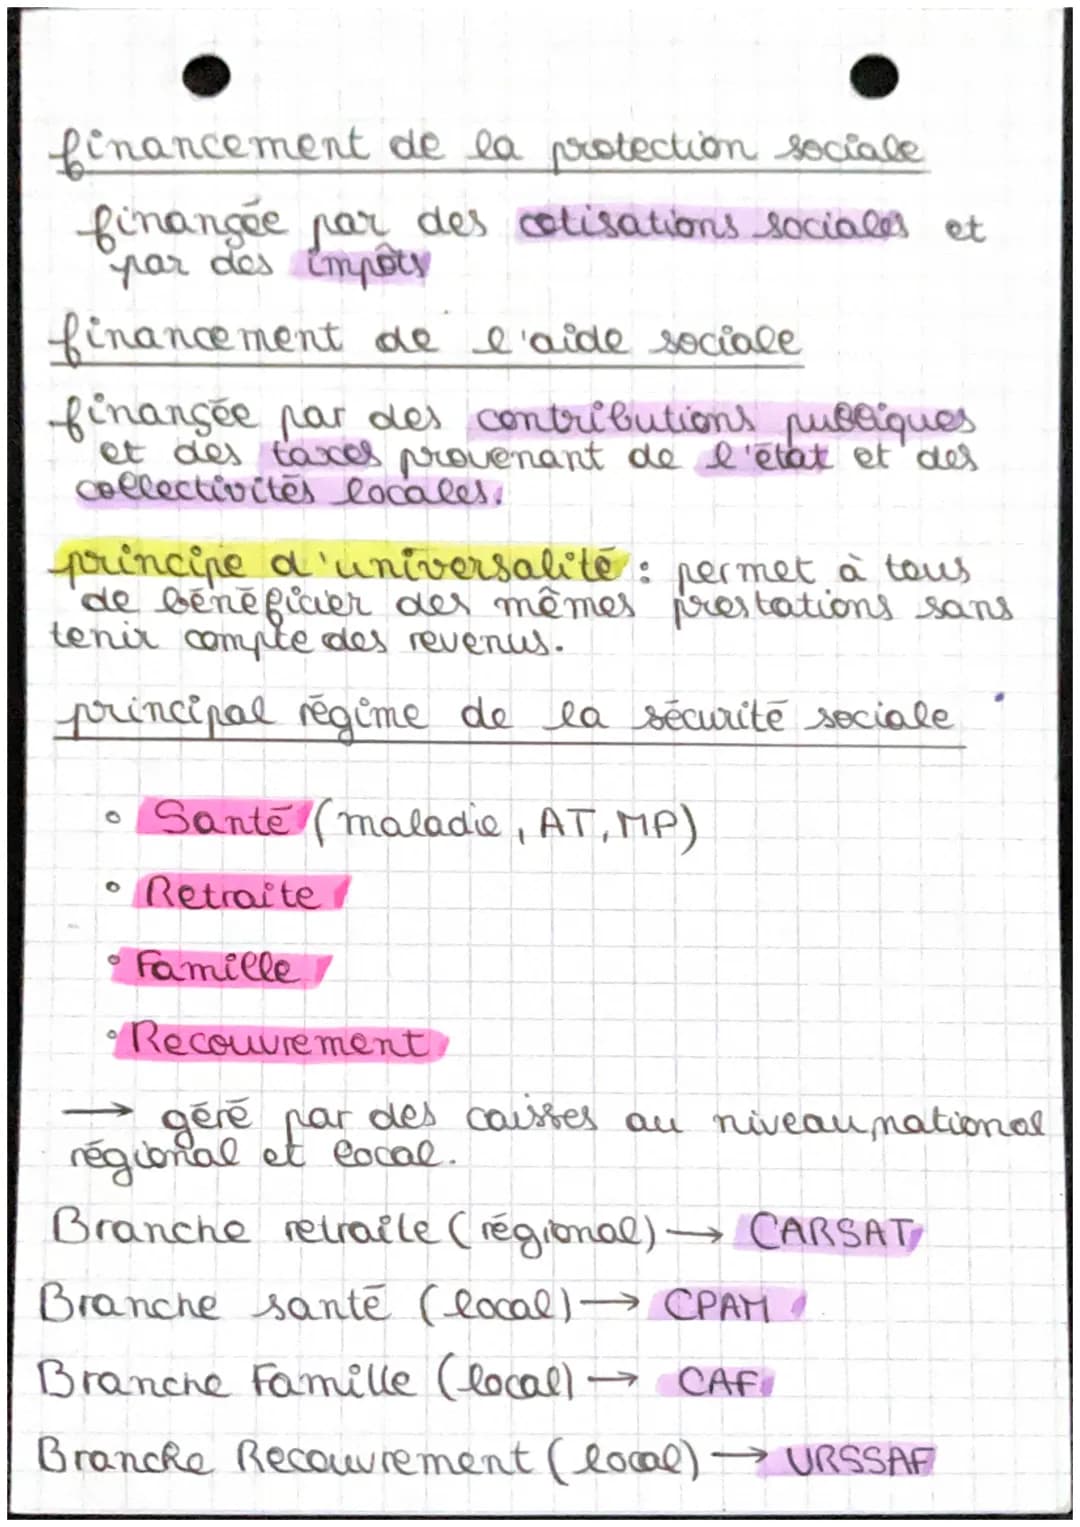 financement de la protection sociale
finançée par des cotisations sociales et
par des impôts
financement de l'aide sociale
finançée par des contributions publiques
et des taxes provenant de l'état et des
collectivités locales.
principe d'universalité : permet à tous
de bénéficier des mêmes prestations sans
tenir compte des revenus.
principal régime de la sécurité sociale
• Santé (maladie, AT, MP)
• Retraite
• Famille
• Recouvrement
→ géré par des caisses au niveau, national
régional et local.
Branche retraite (régional) → CARSAT
Branche santé (local) → CPAM
Branche Famille (local) → CAF
Branche Recouvrement (local) → URSSAF